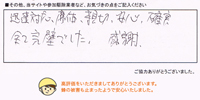 ■その他、当サイトや参加駆除業者など、お気づきの点をご記入ください
迅速対応、価格、親切、安心、確実
全て完璧でした。 感謝
ご協力ありがとうございました。
高評価をいただきましてありがとうございます。
蜂の被害も止まったようで安心いたしました。